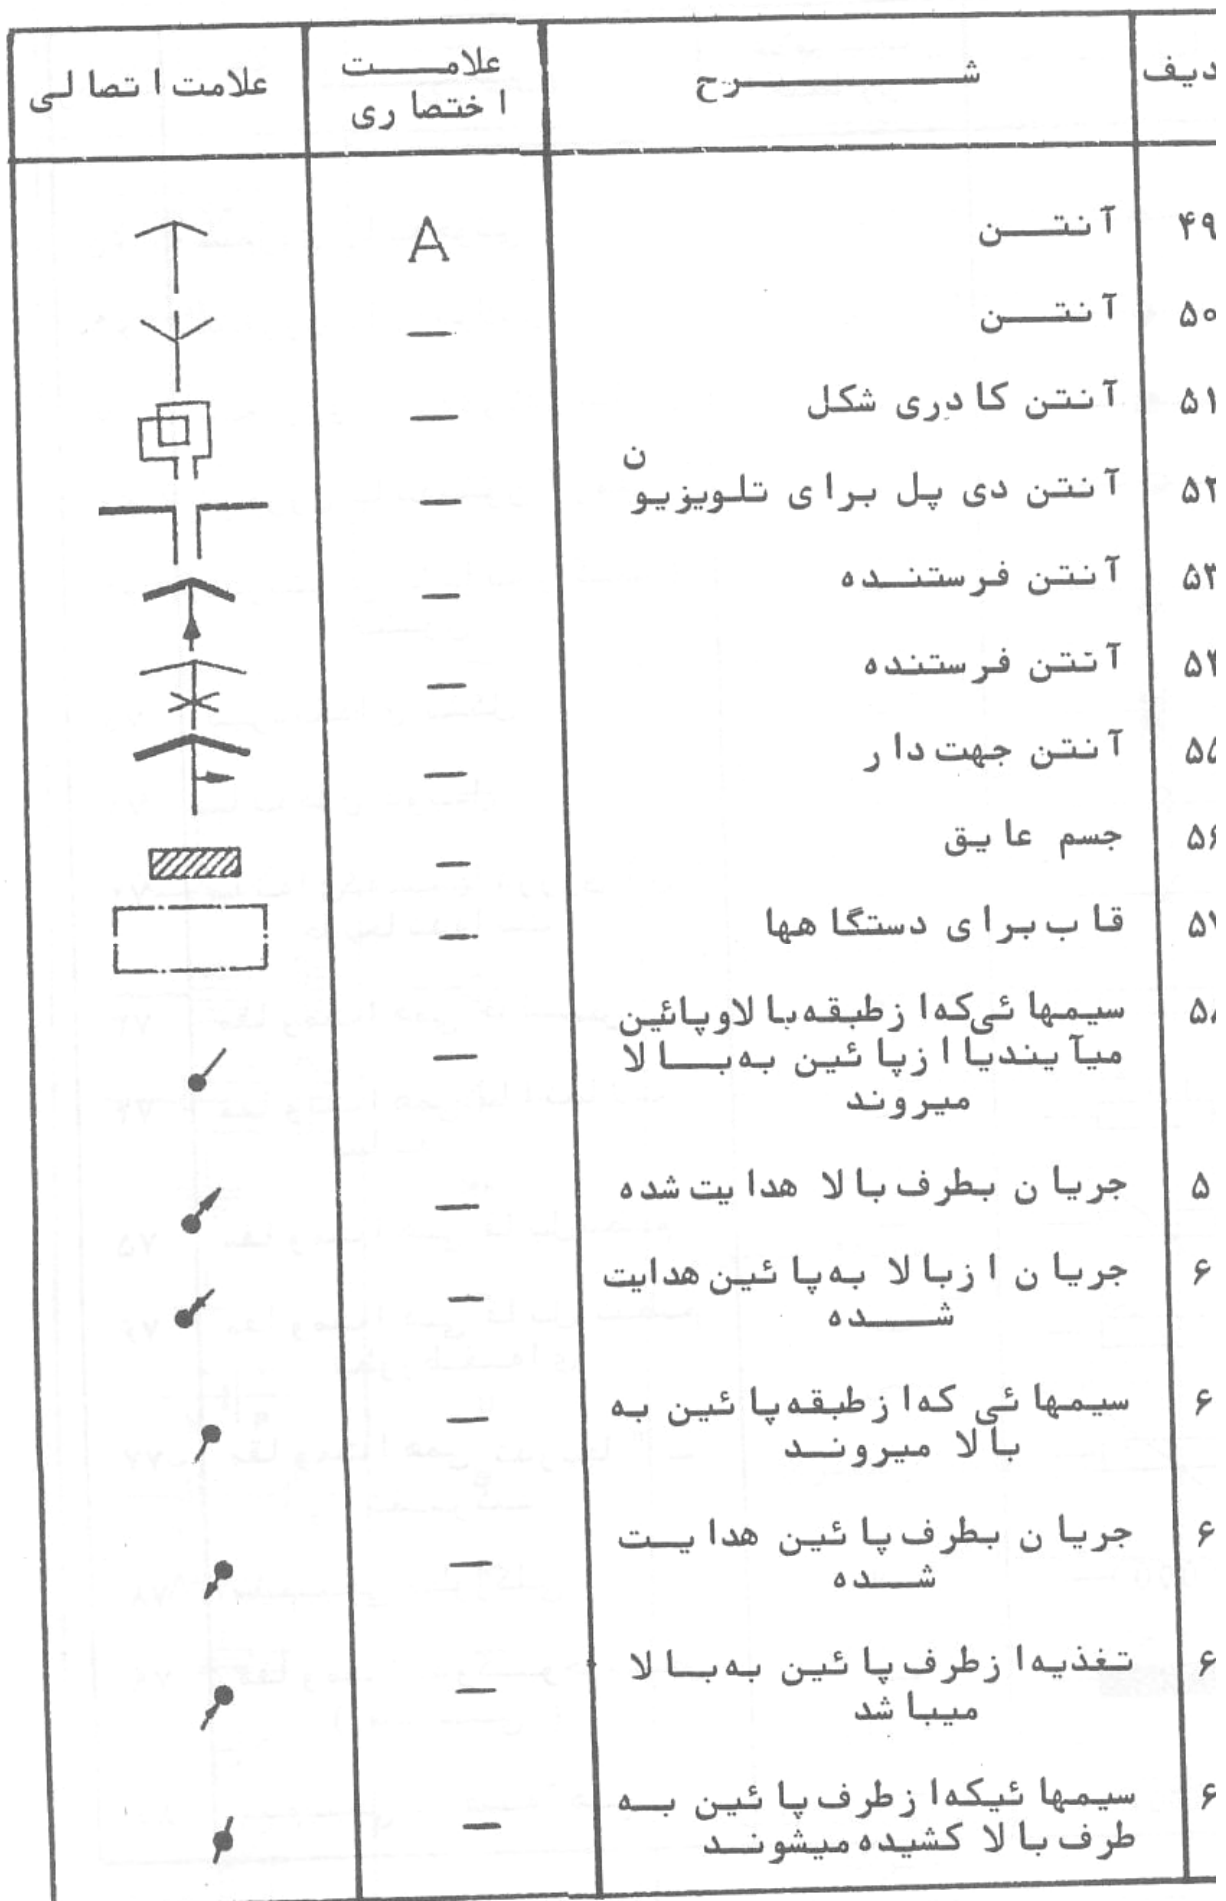 دیف	شـــــــرح	علامـــت	علامت اتصالی
اختصاری
۴۹	آنتـــن	A
۵۰	آنتـــن	—
۵۱	آنتن کادری شکل	—
ن
۵۲	آنتن دی پل برای تلویزیو	—
۵۳	آنتن فرستنـده	—
۵۴	آنتن فرستنده	—
۵۵	آنتن جهت دار	—
۵۶	جسم عایق	—
۵۷	قاب برای دستگاهها	—
۵۸	سیمهائی که از طبقه بالا و پائین
میآیند یا از پائین به بـــالا	—
میروند
۵	جریان بطرف بالا هدایت شده	—
۶	جریان از بالا به پائین هدایت	—
شـــده
۶	سیمهائی که از طبقه پائین به	—
بالا میرونـد
۶	جریان بطرف پائین هدایـت	—
شـــده
۶	تغذیه از طرف پائین به بـالا	—
میباشد
۶	سیمهائیکه از طرف پائین بـه	—
طرف بالا کشیده میشونـد